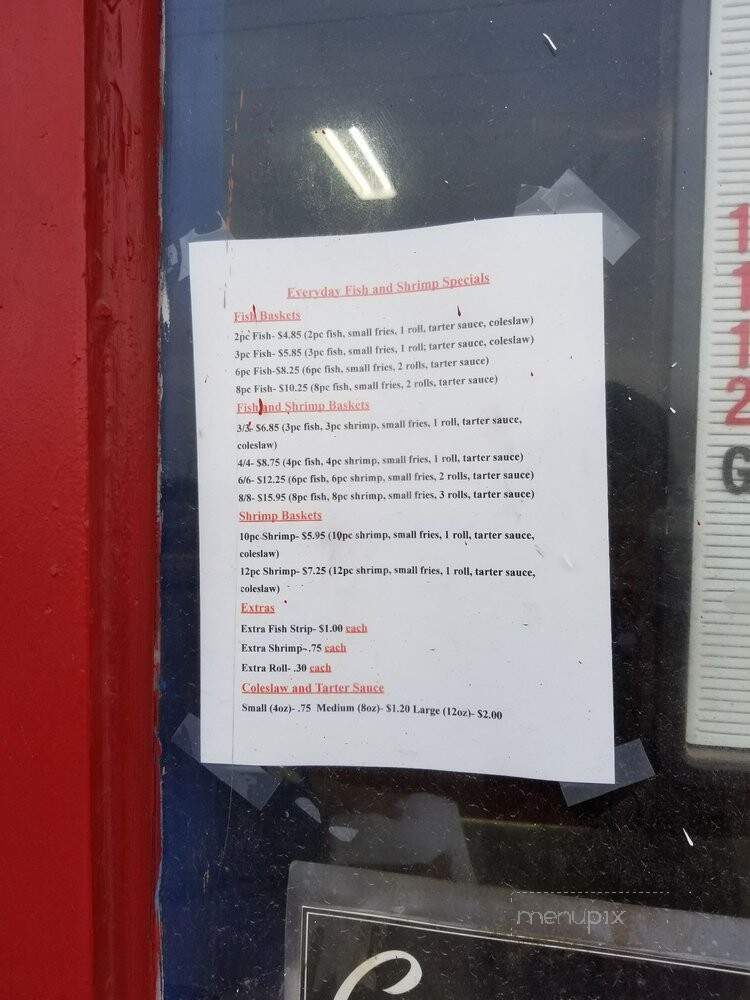 Everyday Fish and Shrimp Specials
Fish Baskets
2pc Fish- $4.85 (2pc fish, small fries, 1 roll, tarter sauce, coleslaw)
3pc Fish- $5.85 (3pc fish, small fries, 1 roll; tarter sauce, coleslaw)
6pc Fish-$8.25 (6pc fish, small fries, 2 rolls, tarter sauce)
8pc Fish- $10.25 (8pc fish, small fries, 2 rolls, tarter sauce)
Fish and Shrimp Baskets
3/3- $6.85 (3pc fish, 3pc shrimp, small fries, 1 roll, tarter sauce,
coleslaw)
4/4- $8.75 (4pc fish, 4pc shrimp, small fries, 1 roll, tarter sauce)
6/6- $12.25 (6pc fish, 6pc shrimp, small fries, 2 rolls, tarter sauce)
8/8- $15.95 (8pc fish, 8pc shrimp, small fries, 3 rolls, tarter sauce)
Shrimp Baskets
10pc Shrimp- $5.95 (10pc shrimp, small fries, 1 roll, tarter sauce,
coleslaw)
12pc Shrimp- $7.25 (12pc shrimp, small fries, 1 roll, tarter sauce,
coleslaw)
Extras
Extra Fish Strip- $1.00 each
Extra Shrimp- .75 each
Extra Roll- .30 each
Coleslaw and Tarter Sauce
Small (4oz)- .75 Medium (8oz)- $1.20 Large (12oz)- $2.00
1
1
1
2
G
menupix